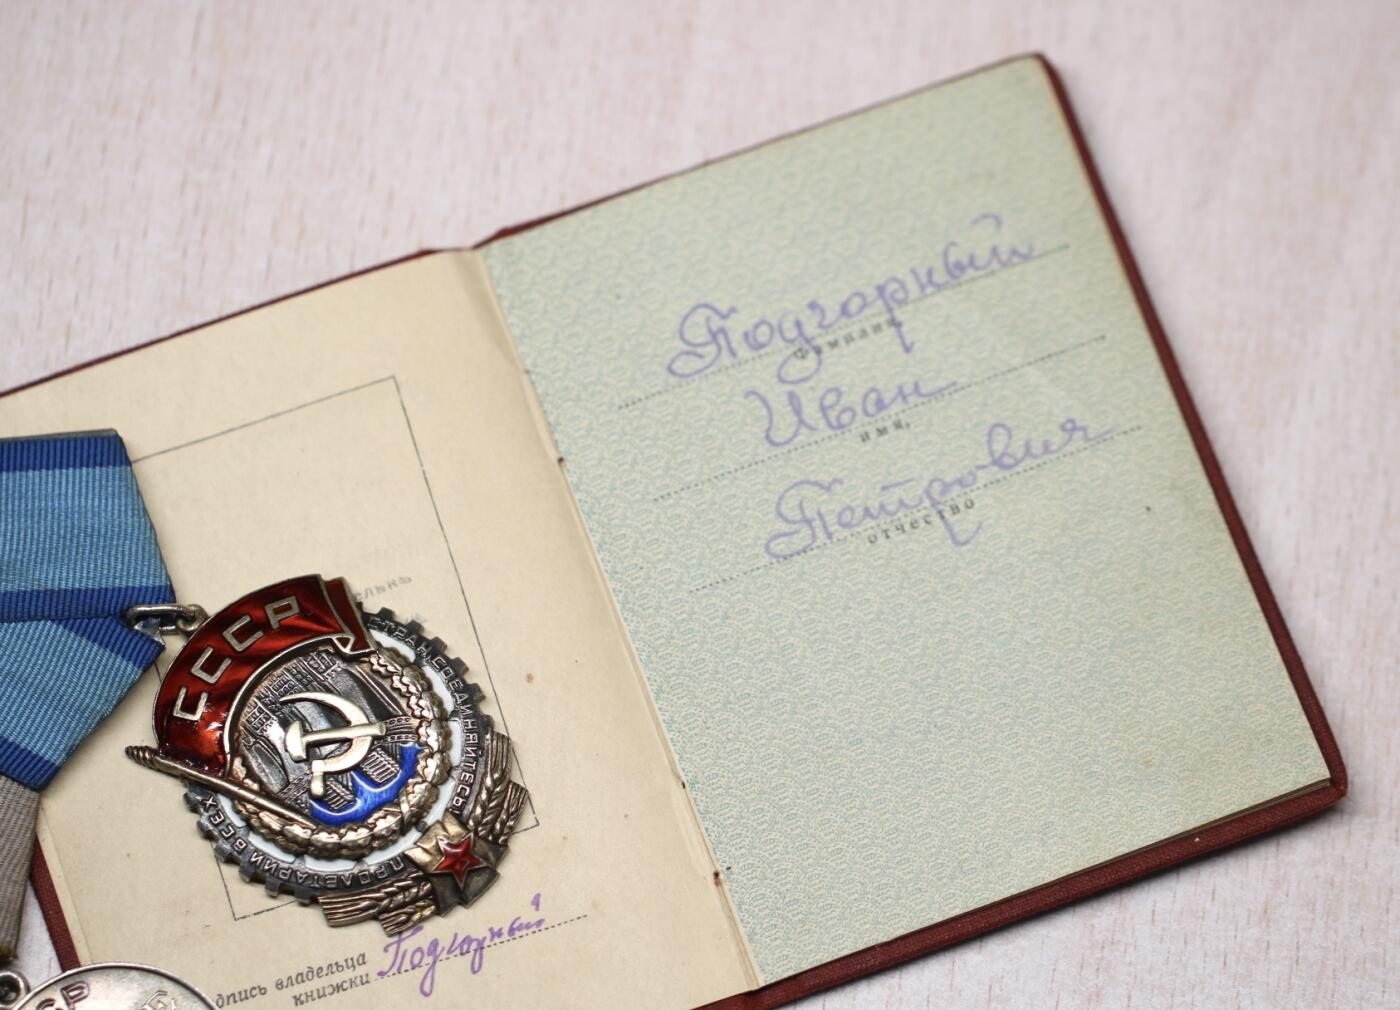 Подгорный
фамилия,
Иван
имя,
Петрович
отчество
СССР
ПРОЛЕТАРИИ ВСЕХ СТРАН, СОЕДИНЯЙТЕСЬ!
дпись владельца
книжки
Подгорный
СР